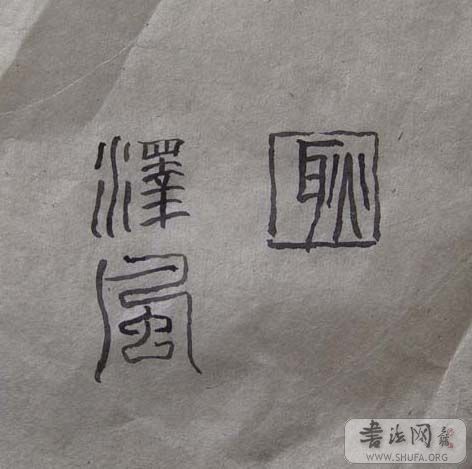 耿
澤風
书法网
WWW.SHUFA.ORG